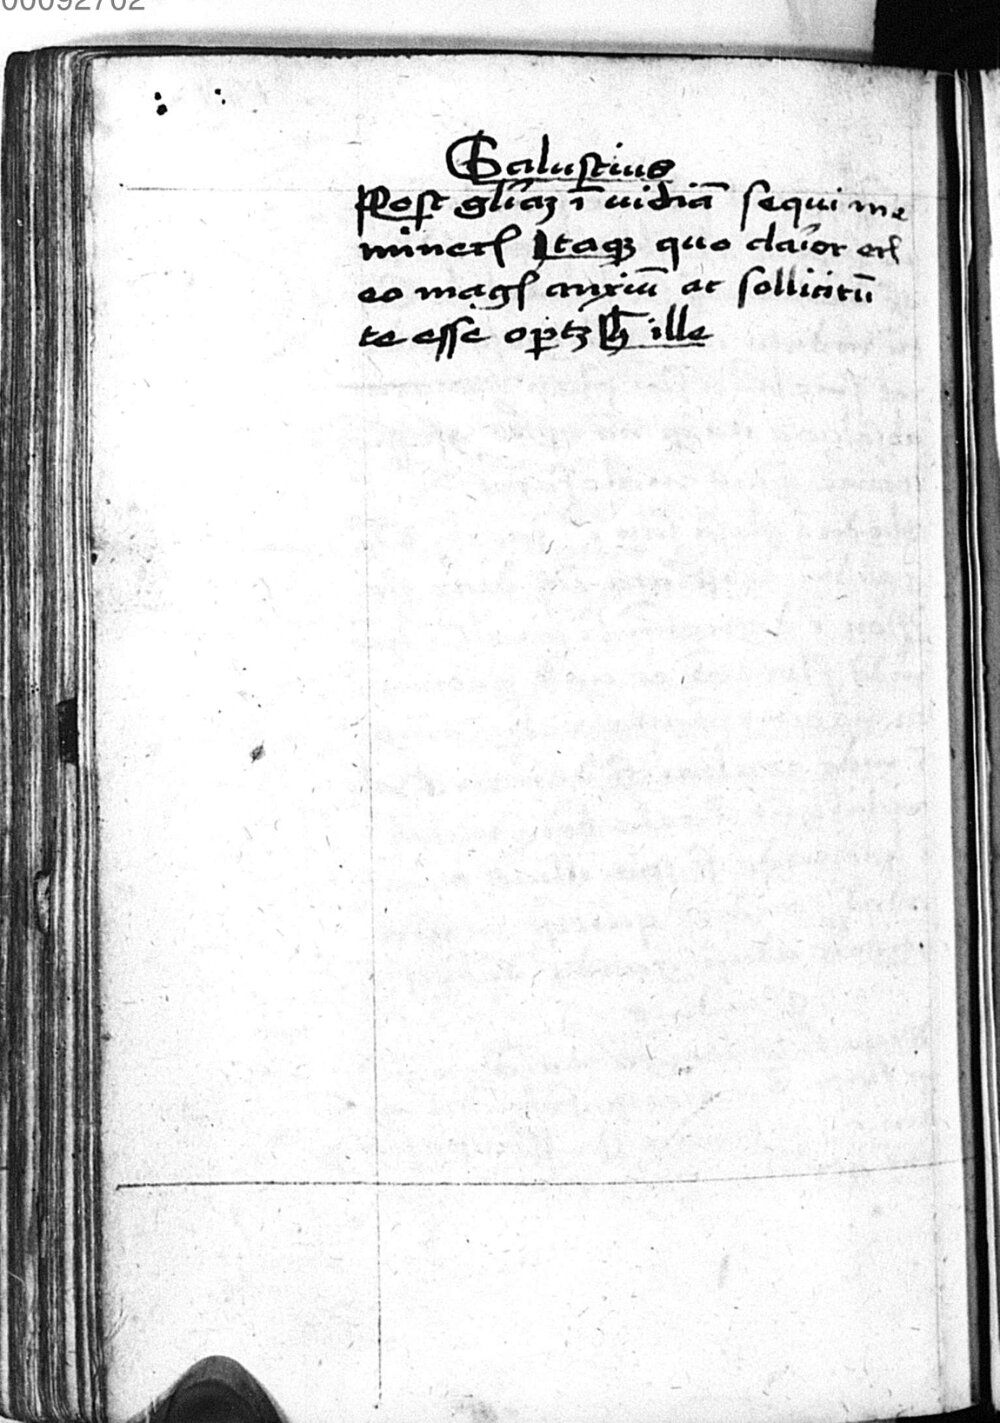 00092702
Salustius
Post gl̄iaꝫ ī uidiā sequi me
minerꝭ Itaqꝫ quo clarior erꝭ
eo magꝭ anxiū ac sollicitū
te esse oportꝫ h̄ ille